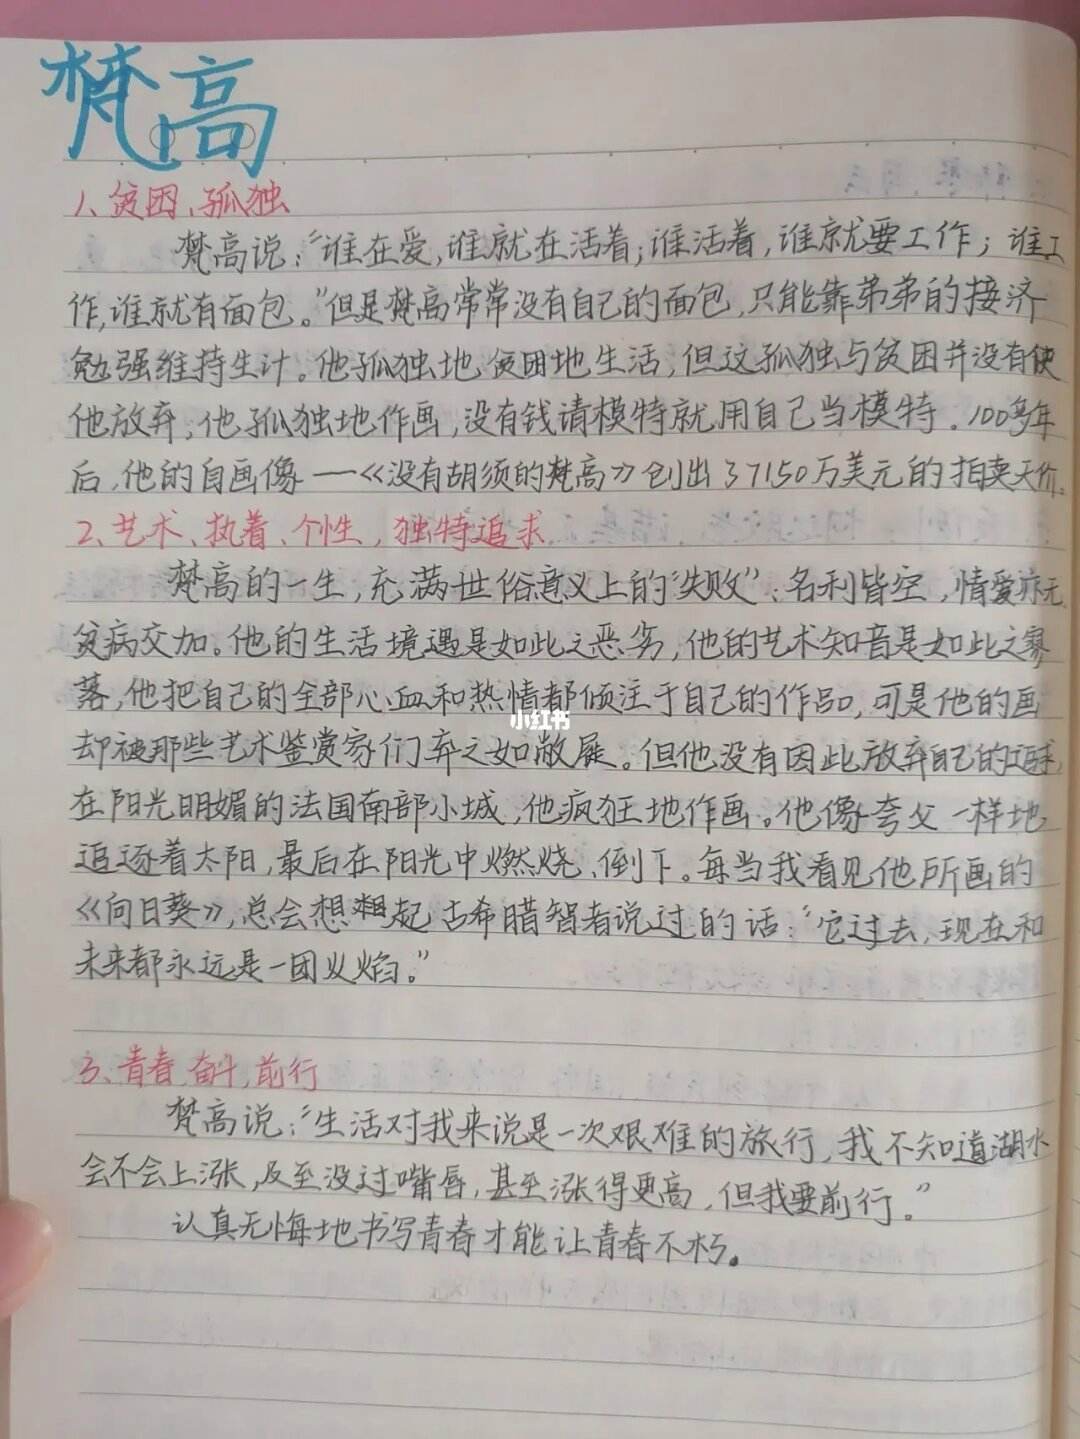 梵高
1、贫困、孤独
梵高说:“谁在爱,谁就在活着;谁活着,谁就要工作;谁工
作,谁就有面包。”但是梵高常常没有自己的面包,只能靠弟弟的接济
勉强维持生计。他孤独地、贫困地生活,但这孤独与贫困并没有使
他放弃,他孤独地作画,没有钱请模特就用自己当模特.100多年
后,他的自画像——《没有胡须的梵高》创出37150万美元的拍卖天价。
2、艺术、执着、个性,独特追求
梵高的一生,充满世俗意义上的“失败”:名利皆空,情爱亦无,
贫病交加。他的生活境遇是如此之恶劣,他的艺术知音是如此之寥
落,他把自己的全部心血和热情都倾注于自己的作品,可是他的画
小红书
却被那些艺术鉴赏家们弃之如敝屣。但他没有因此放弃自己的追求,
在阳光明媚的法国南部小城,他疯狂地作画。他像夸父一样地
追逐着太阳,最后在阳光中燃烧、倒下。每当我看见他所画的
《向日葵》,总会想起古希腊智者说过的话:“它过去,现在和
未来都永远是一团火焰。”
3、青春,奋斗,前行
梵高说:“生活对我来说是一次艰难的旅行,我不知道湖水
会不会上涨,及至没过嘴唇,甚至涨得更高,但我要前行。”
认真无悔地书写青春才能让青春不朽。